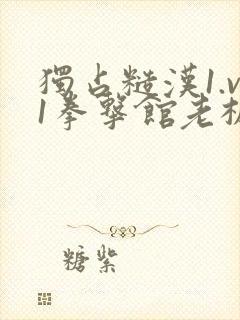 獨占糙漢1.v
1拳擊館老板
糖紫